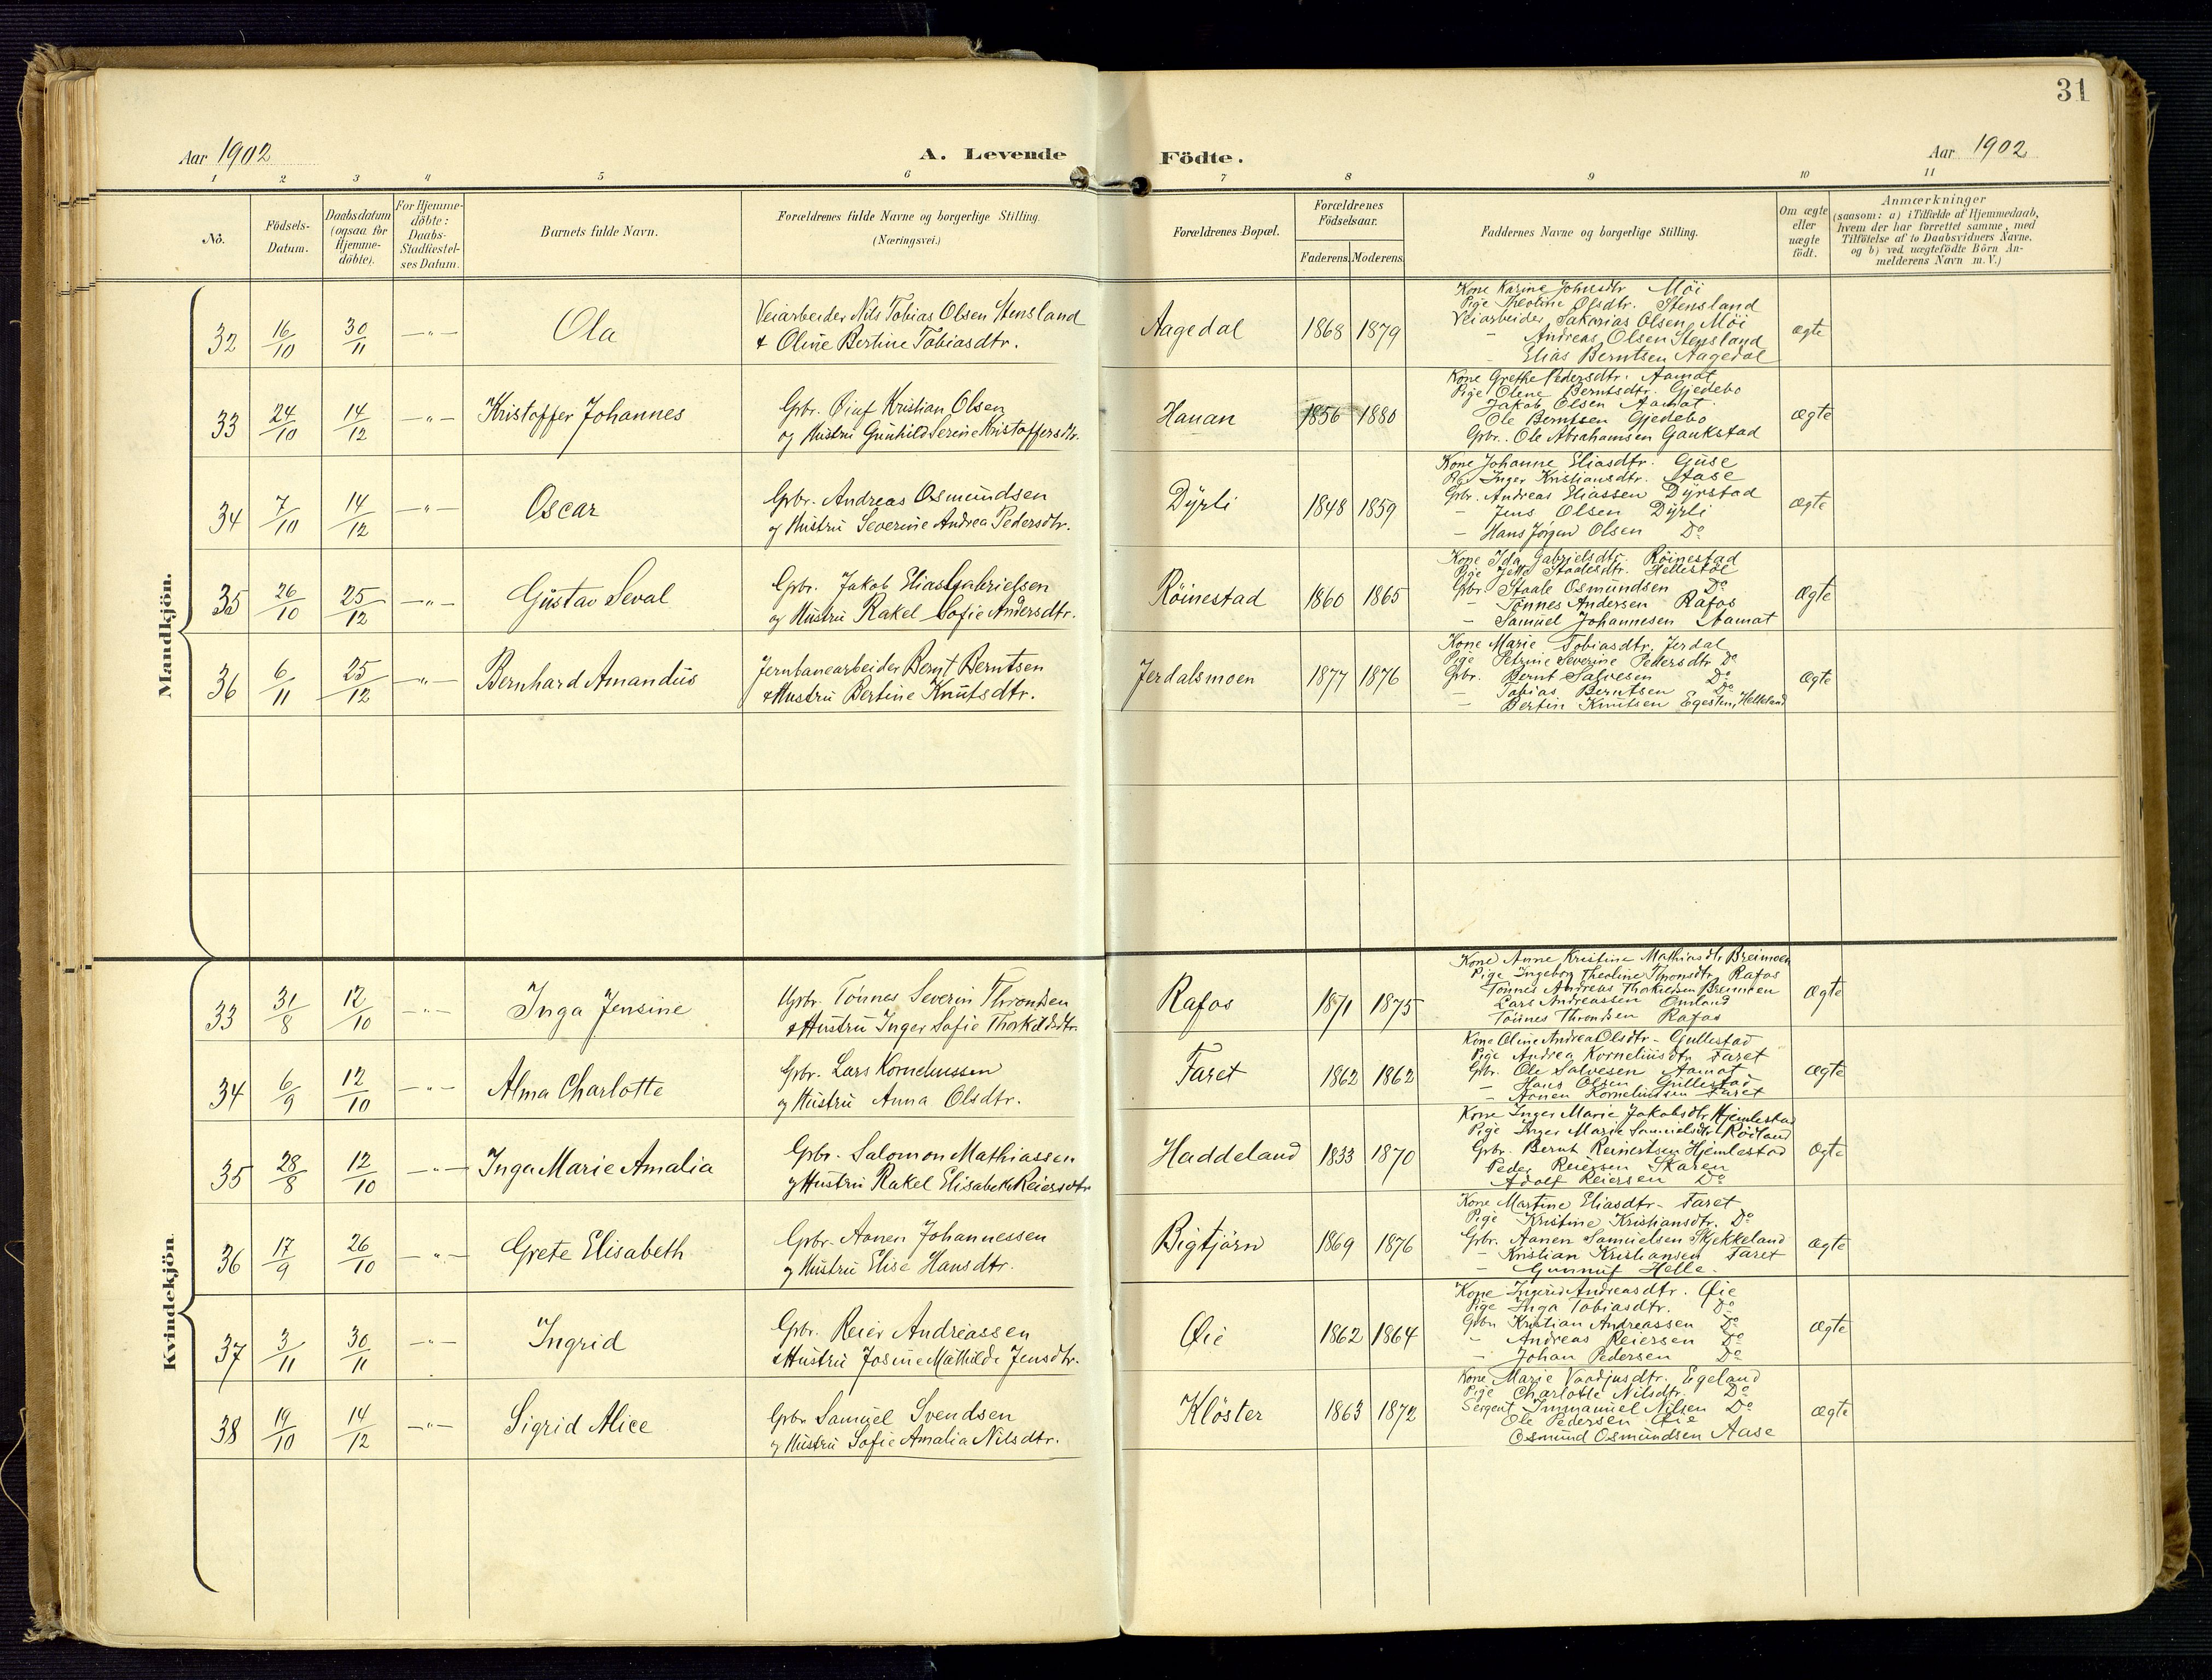 31
Aar 1902
A. Levende Födte.
Aar 1902
1 2 3 4 5 6 7 8 9 10 11
No.
Födsels-Datum.
Daabsdatum (ogsaa for Hjemme-döbte).
For Hjemme-döbte: Daabs-Stadfæstel-ses Datum.
Barnets fulde Navn.
Forældrenes fulde Navne og borgerlige Stilling. (Næringsvei.)
Forældrenes Bopæl.
Forældrenes Födselsaar.
Faderens. Moderens.
Faddernes Navne og borgerlige Stilling.
Om ægte eller uægte födt.
Anmærkninger
(saasom: a) i Tilfælde af Hjemmedaab, hvem der har forrettet samme, med Tilföielse af to Daabsvidners Navne, og b) ved uægtefödte Börn An-melderens Navn m. V.)
Mandkjön.
32 16/10 30/11 -"- Ola
Veiarbeider Nils Tobias Olsen Stensland
& Oline Bertine Tobiasdtr.
Aagedal 1868 1879
Kone Karine Johnsdtr Möi
Pige Theoline Olsdtr. Stensland
Veiarbeider Sakarias Olsen Möi
- Andreas Olsen Stensland
- Elias Berntsen Aagedal
ægte
33 24/10 14/12 -"- Kristoffer Johannes
Gbr. Öiuf Kristian Olsen
og Hustru Gunhild Serine Kristoffersdtr.
Hanan 1856 1880
Kone Grethe Pedersdtr. Aamat
Pige Olene Berntsdtr. Gjedebo
Jakob Olsen Aamat.
Ole Berntsen Gjedebo
Gbr. Ole Abrahamsen Gaukstad
ægte
34 7/10 14/12 -"- Oscar
Gbr. Andreas Osmundsen
og Hustru Severine Andrea Pedersdtr.
Dyrli 1848 1859
Kone Johanne Eliasdtr. Guse
Pige Inger Kristiansdtr. Aase
Gbr. Andreas Eliassen Dyrstad
- Jens Olsen Dyrli
- Hans Jørgen Olsen Do
ægte
35 26/10 25/12 -"- Gustav Seval
Gbr. Jakob Elias Gabrielsen
og Hustru Rakel Sofie Andersdtr.
Röinestad 1860 1865
Kone Ida Gabrielsdtr. Röinestad
Pige Jette Staalesdtr. Hellestöl
Gbr. Staale Osmundsen Do
- Tönnes Andersen Rafos
- Samuel Johannesen Aamat
Ægte
36 6/11 25/12 -"- Bernhard Amandus
Jernbanearbeider Bernt Berntsen
& Hustru Bertine Knutsdtr.
Jerdalsmoen 1877 1876
Kone Marie Tobiasdtr. Jerdal
Pige Petrine Severine Pedersdtr Do
Gbr. Bernt Salvesen Do
- Tobias Berntsen Do
- Bertin Knutsen Egesten, Helleland
Ægte
Kvindekjön.
33 31/8 12/10 -"- Inga Jensine
Gbr. Tönnes Severin Throndsen
& Hustru Inger Sofie Thorkildsdtr.
Rafos 1871 1875
Kone Anne Kristine Mathiasdtr Breimoen
Pige Ingeborg Theoline Thronsdtr. Rafos
Tönnes Andreas Thorkildsen Breimoen
Lars Andreassen Omland
Tönnes Throndsen Rafos
Ægte
34 6/9 12/10 -"- Alma Charlotte
Gbr. Lars Korneliussen
og Hustru Anna Olsdtr.
Faret 1862 1862
Kone Oline Andrea Olsdtr - Gullestad
Pige Andrea Korneliusdtr Faret
Gbr. Ole Salvesen Aamat
- Hans Olsen Gullestad
- Aanen Korneliussen Faret
Ægte
35 28/8 12/10 -"- Inga Marie Amalia
Gbr. Salomon Mathiassen
og Hustru Rakel Elisabeth Reiersdtr
Haddeland 1833 1870
Kone Inger Marie Jakobsdtr Hjemlestad
Pige Inger Marie Samuelsdtr Röiland
Gbr. Bernt Reinertsen Hjemlestad
Peder Reiersen Skaren
Adolf Reiersen Do
Ægte
36 17/9 26/10 -"- Grete Elisabeth
Gbr. Aanen Johannessen
og Hustru Elise Hansdtr.
Bigtjörn 1869 1876
Kone Martine Eliasdtr - Faret
Pige Kristine Kristiansdtr. Do
Gbr. Aanen Samuelsen Skjekkeland
- Kristian Kristiansen Faret
- Gunnuf Helle.
ægte
37 3/11 30/11 -"- Ingrid
Gbr. Reier Andreassen
& Hustru Josine Mathilde Jensdtr.
Öie 1862 1864
Kone Ingerid Andreasdtr. Öie
Pige Inga Tobiasdtr. Do
Gbr. Kristian Andreassen Do
" Andreas Reiersen Do
- Johan Pedersen Do
ægte
38 19/10 14/12 -"- Sigrid Alice
Gbr. Samuel Svendsen
og Hustru Sofie Amalia Nilsdtr.
Klöster 1863 1872
Kone Marie Vaadjusdtr. Egeland
Pige Charlotte Nilsdtr. Do
Sergent Immanuel Nilsen Do
Ole Pedersen Öie
Osmund Osmundsen Aase
ægte